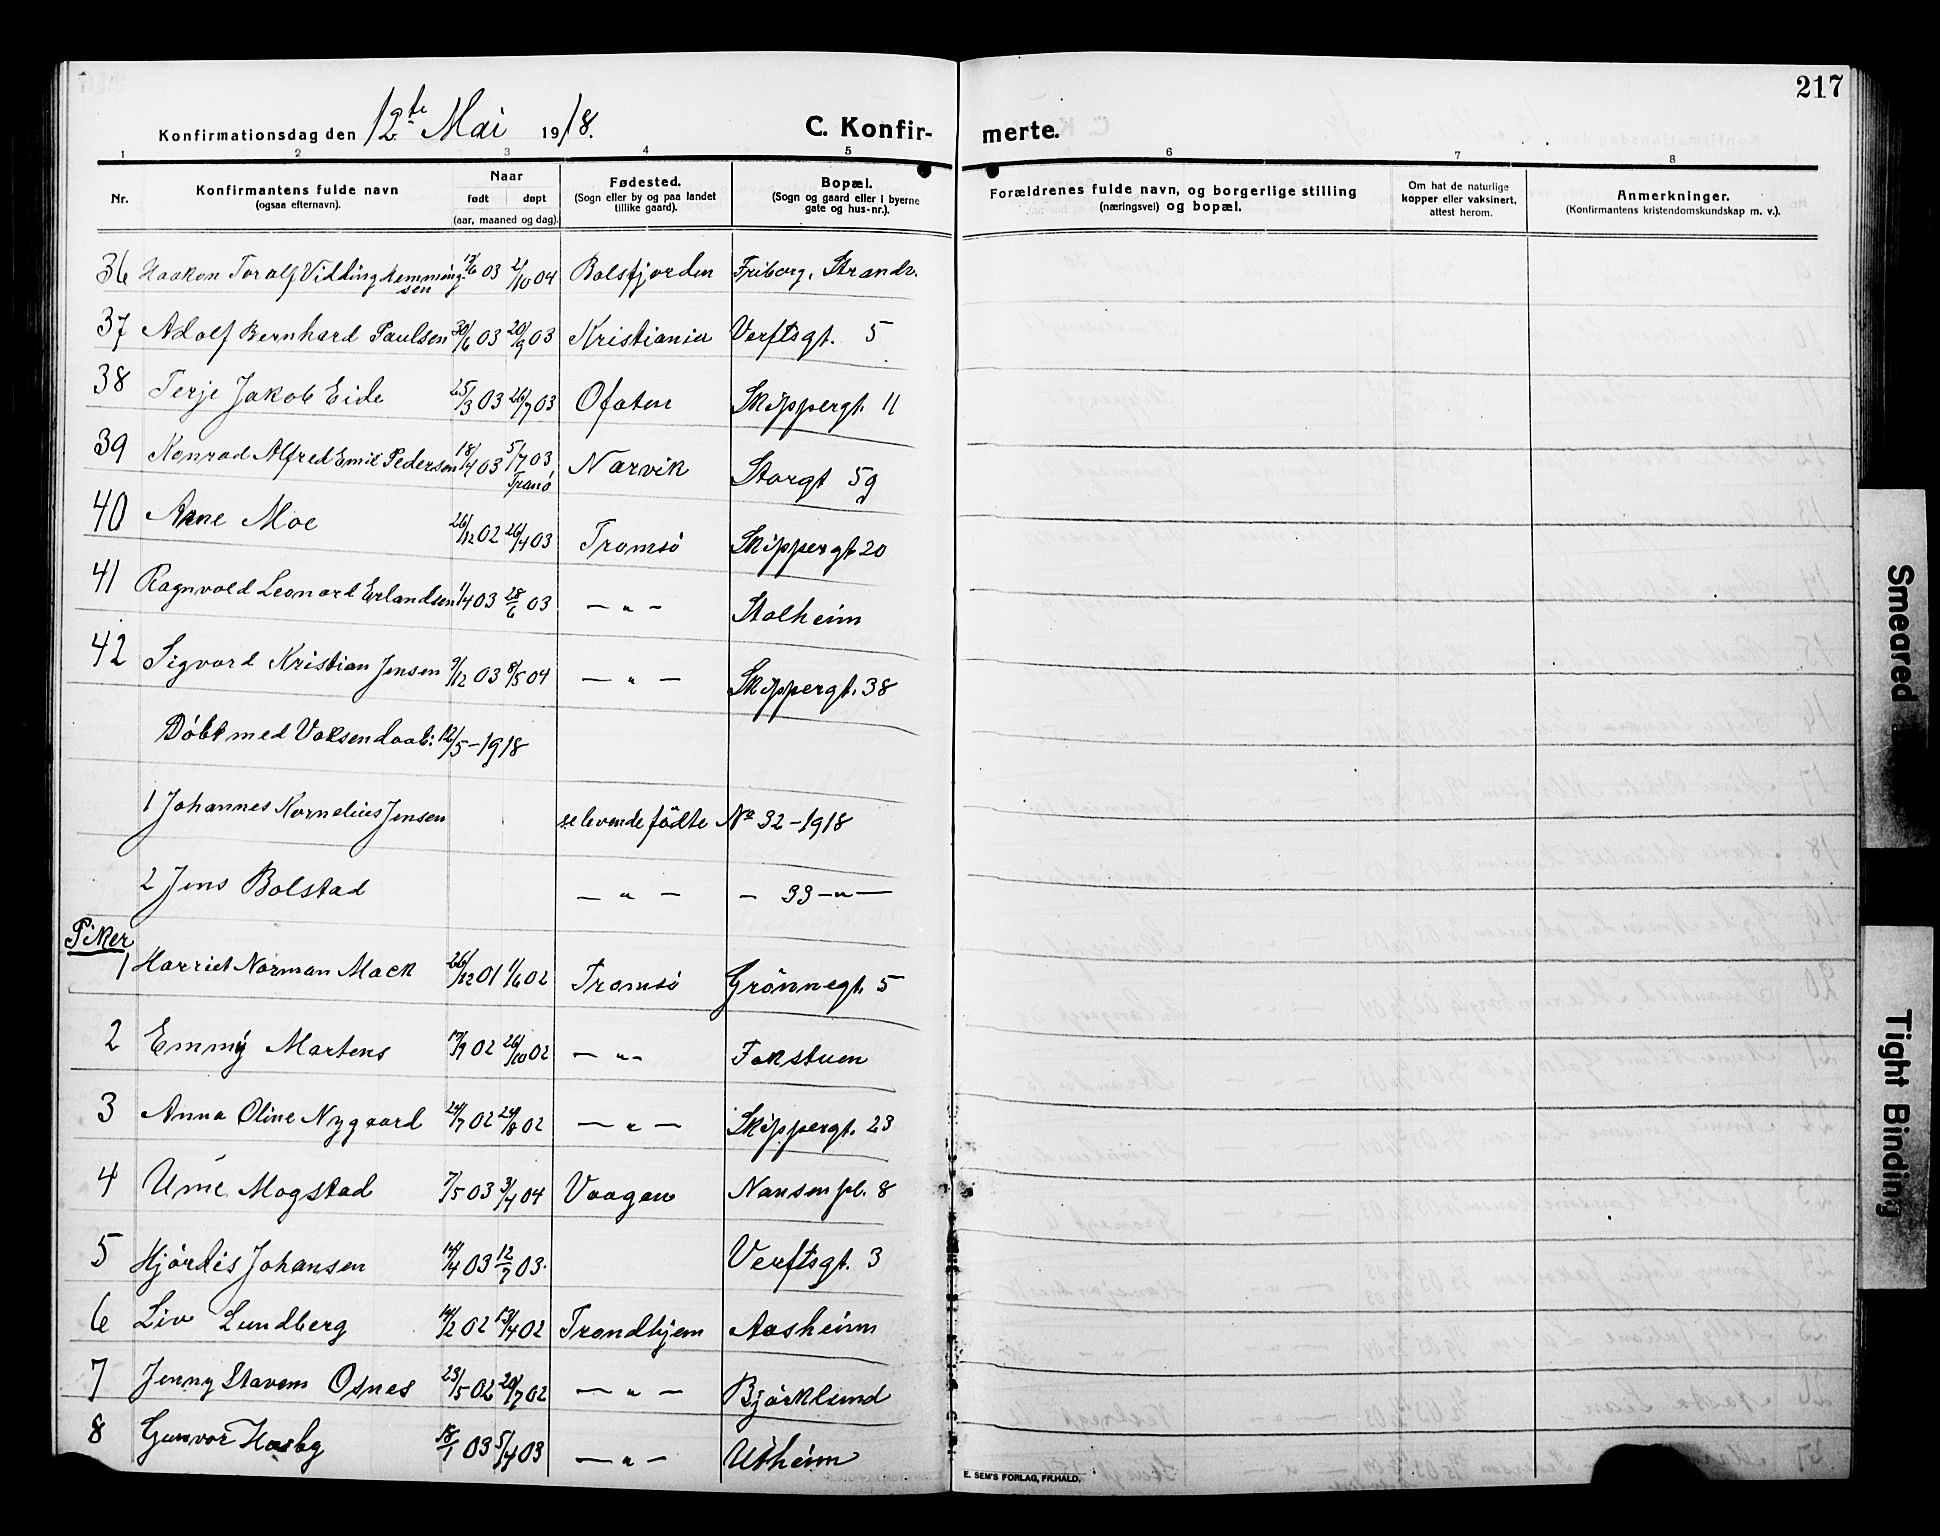 217
Konfirmationsdag den 12te Mai 1918.
C. Konfirmerte.
1 2 3 4 5 6 7 8
Nr.
Konfirmantens fulde navn
(ogsaa efternavn).
Naar
født døpt
(aar, maaned og dag).
Fødested.
(Sogn eller by og paa landet
tillike gaard).
Bopæl.
(Sogn og gaard eller i byerne
gate og hus-nr.).
Forældrenes fulde navn, og borgerlige stilling
(næringsvei) og bopæl.
Om hat de naturlige
kopper eller vaksinert,
attest herom.
Anmerkninger.
(Konfirmantens kristendomskundskap m. v.).
36 Haakon Toralf Vilding Hemmingsen 17/6 03 2/10 04 Balsfjorden Friborg, Strandv.
37 Adolf Bernhard Paulsen 30/6 03 20/9 03 Kristiania Verftsgt. 5
38 Terje Jakob Eide 25/3 03 26/7 03 Ofoten Skippergt. 11
39 Konrad Alfred Emil Pedersen 18/4 03 5/7 03 Tranö Narvik Storgt 59
40 Arne Moe 26/12 02 26/4 03 Tromsö Skippergt 20
41 Ragnvald Leonard Erlandsen 1/4 03 28/6 03 — " — Stalheim
42 Sigvard Kristian Jensen 9/12 03 8/5 04 — " — Skippergt. 38
Döbt med Voksendaab: 12/5 - 1918
1 Johannes Kornelius Jensen se levende födte No 32 - 1918
2 Jens Bolstad — " — — 33 — " —
Piker
1 Harriet Norman Mack 26/12 01 1/6 02 Tromsö Grönnegt. 5
2 Emmy Martens 17/9 02 26/10 02 — " — Fokstuen
3 Anna Oline Nygaard 24/7 02 24/8 02 — " — Skippergt. 23
4 Unie Mogstad 7/5 03 3/4 04 Vaagan Nansenpl. 8
5 Hjördis Johansen 14/4 03 12/7 03. Verftsgt. 3
6 Liv Lundberg 14/2 02 13/4 02 Trondhjem Aasheim
7 Jenny Stavem Osnes 23/5 02 20/7 02 — " — Björklund
8 Gunvor Hasby 18/1 03 5/4 03 — " — Utheim
E. SEM'S FORLAG, FR.HALD.
Smeared
Tight Binding